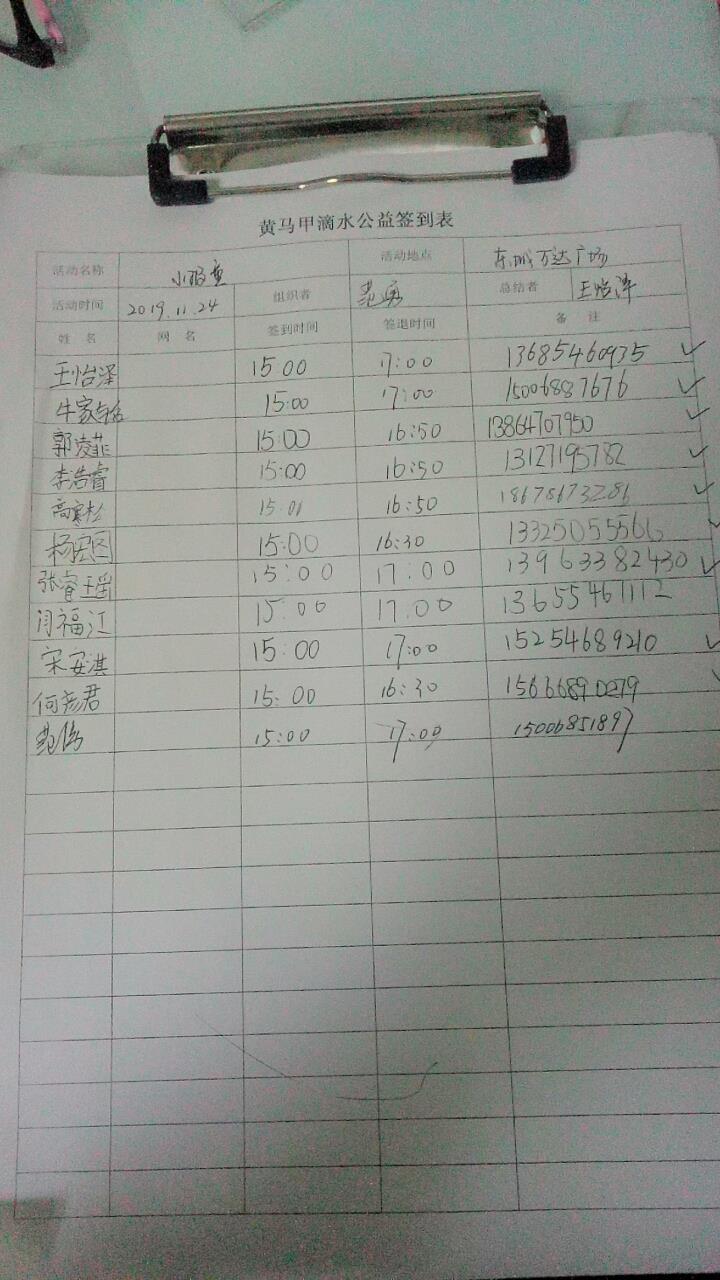 黄马甲滴水公益签到表
活动名称 活动地点 东城万达广场
活动时间 2019.11.24 组织者 范勇 总结者 王怡泽
姓 名 网 名 签到时间 签退时间 备 注
王怡泽 15:00 17:00 13685460935 ✓
牛家 15:00 17:00 15006887676 ✓
郭凌菲 15:00 16:50 13864707950 ✓
李浩睿 15:00 16:50 13127195782 ✓
高寒杉 15:01 16:50 18678673286 ✓
杨宏图 15:00 16:30 13325055566 ✓
张睿瑶 15:00 17:00 13963382430 ✓
闫福江 15:00 17:00 13655467112
宋安淇 15:00 17:00 15254689210 ✓
何彦君 15:00 16:30 15666890279 ✓
15:00 17:00 15006851897